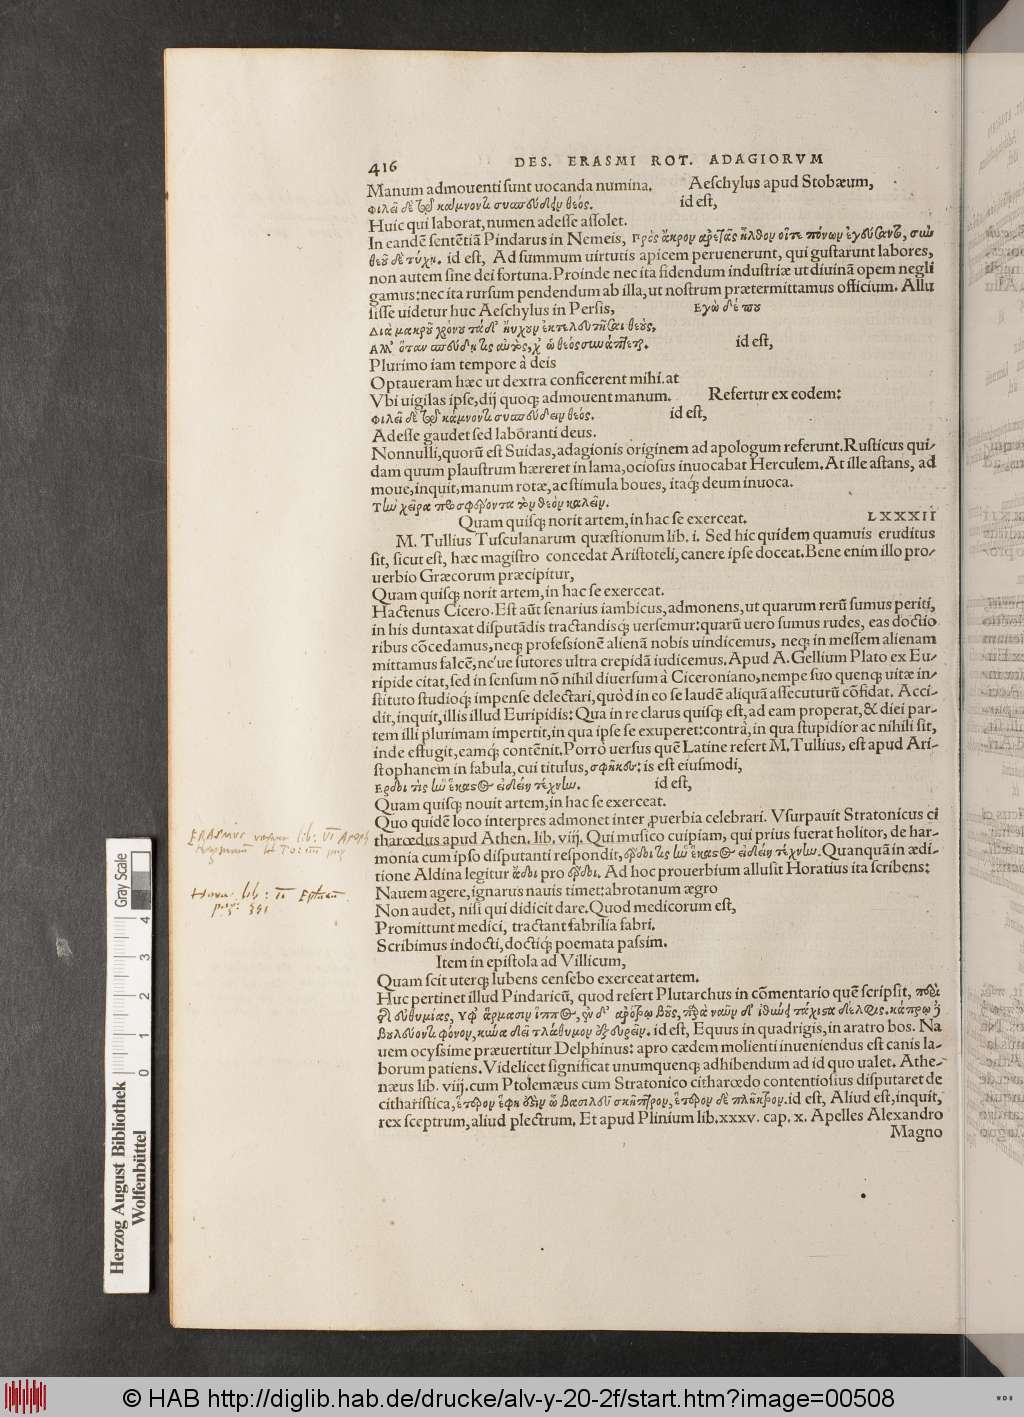 416 DES. ERASMI ROT. ADAGIORVM
Manum admouenti sunt uocanda numina. Aeschylus apud Stobæum,
φιλεῖ δὲ τῷ κάμνοντι συσπεύδειν θεός. id est,
Huic qui laborat, numen adesse assolet.
In eandē sentētiā Pindarus in Nemeis, πρὸς ἄκρον ἀρετᾶς ἦλθον οἵτε πόνων ἐγεύσαντο, σὺν
θεοῦ δὲ τύχῃ. id est, Ad summum uirtutis apicem peruenerunt, qui gustarunt labores,
non autem sine dei fortuna. Proinde nec ita fidendum industriæ ut diuinā opem negli
gamus: nec ita rursum pendendum ab illa, ut nostrum prætermittamus officium. Allu
sisse uidetur huc Aeschylus in Persis, Εγὼ δέ που
Διὰ μακροῦ χρόνου τάδ' ηὔχουν ἐκτελευτήσαι θεούς,
Αλλ' ὅταν σπεύδῃ τις αὐτὸς, χ' ὡ θεὸς συνάπτεται. id est,
Plurimo iam tempore à deis
Optaueram hæc ut dextra conficerent mihi. at
Vbi uigilas ipse, dij quoq; admouent manum. Refertur ex eodem:
φιλεῖ δὲ τῷ κάμνοντι συσπεύδειν θεός. id est,
Adesse gaudet sed labōranti deus.
Nonnulli, quorū est Suidas, adagionis originem ad apologum referunt. Rusticus qui-
dam quum plaustrum hæreret in lama, ociosus inuocabat Herculem. At ille astans, ad
moue, inquit, manum rotæ, ac stimula boues, itaq; deum inuoca.
Τὼ χεῖρα προσφέροντα τὸν θεὸν καλεῖν.
Quam quisq; norit artem, in hac se exerceat. LXXXII
M. Tullius Tusculanarum quæstionum lib. i. Sed hic quidem quamuis eruditus
sit, sicut est, hæc magistro concedat Aristoteli, canere ipse doceat. Bene enim illo pro-
uerbio Græcorum præcipitur,
Quam quisq; norit artem, in hac se exerceat.
Hactenus Cicero. Est aūt senarius iambicus, admonens, ut quarum rerū sumus periti,
in his duntaxat disputādis tractandisq; uersemur: quarū uero sumus rudes, eas doctio
ribus cōcedamus, neq; professionē alienā nobis uindicemus, neq; in messem alienam
mittamus falcē, néue sutores ultra crepidā iudicemus. Apud A. Gellium Plato ex Eu-
ripide citat, sed in sensum nō nihil diuersum à Ciceroniano, nempe suo quenq; uitæ in-
stituto studioq; impense delectari, quòd in eo se laudē aliquā assecuturū cōfidat. Acci-
dit, inquit, illis illud Euripidis: Qua in re clarus quisq; est, ad eam properat, & diei par-
tem illi plurimam impertit, in qua ipse se exuperet: contrà, in qua stupidior ac nihili sit,
inde effugit, eamq; contēnit. Porrò uersus quē Latine refert M. Tullius, est apud Ari-
stophanem in fabula, cui titulus, σφῆκες: is est eiusmodi,
Ερδοι τὶς ἣν ἕκαστος εἰδείη τέχνην. id est,
Quam quisq; nouit artem, in hac se exerceat.
Quo quidē loco interpres admonet inter puerbia celebrari. Vsurpauit Stratonicus ci
tharœdus apud Athen. lib. viij. Qui musico cuipiam, qui prius fuerat holitor, de har-
monia cum ipso disputanti respondit, ἔρδοι τις ἣν ἕκαστος εἰδείη τέχνην. Quanquā in ædi-
tione Aldina legitur ᾄδοι pro ἔρδοι. Ad hoc prouerbium allusit Horatius ita scribens:
Nauem agere, ignarus nauis timet: abrotanum ægro
Non audet, nisi qui didicit dare. Quod medicorum est,
Promittunt medici, tractant fabrilia fabri.
Scribimus indocti, doctiq; poemata passim.
Item in epistola ad Villicum,
Quam scit uterq; lubens censebo exerceat artem.
Huc pertinet illud Pindaricū, quod refert Plutarchus in cōmentario quē scripsit, περὶ
τῆς εὐθυμίας, ὑφ' ἅρμασιν ἵππος, ἐν δ' ἀρότρῳ βοῦς, παρὰ ναῦν δ' ἰθύει τάχιστα δελφίς. κάπρῳ δὲ
βουλεύοντι φόνον, κύνα δεῖ τλάθυμον ἐξευρεῖν. id est, Equus in quadrigis, in aratro bos. Na
uem ocyssime præuertitur Delphinus: apro cædem molienti inueniendus est canis la-
borum patiens. Videlicet significat unumquenq; adhibendum ad id quo ualet. Athe-
næus lib. viij. cum Ptolemæus cum Stratonico citharœdo contentiosius disputaret de
citharistica, ἕτερον ἔφη ἐστὶν ὦ βασιλεῦ σκῆπτρον, ἕτερον δὲ πλῆκτρον. id est, Aliud est, inquit,
rex sceptrum, aliud plectrum. Et apud Plinium lib. xxxv. cap. x. Apelles Alexandro
Magno
ERASMUS lib: VI Apoph
Hora. lib: II Epistolarum
pag: 391
Gray Scale
0 1 2 3 4
Herzog August Bibliothek
Wolfenbüttel
© HAB http://diglib.hab.de/drucke/alv-y-20-2f/start.htm?image=00508